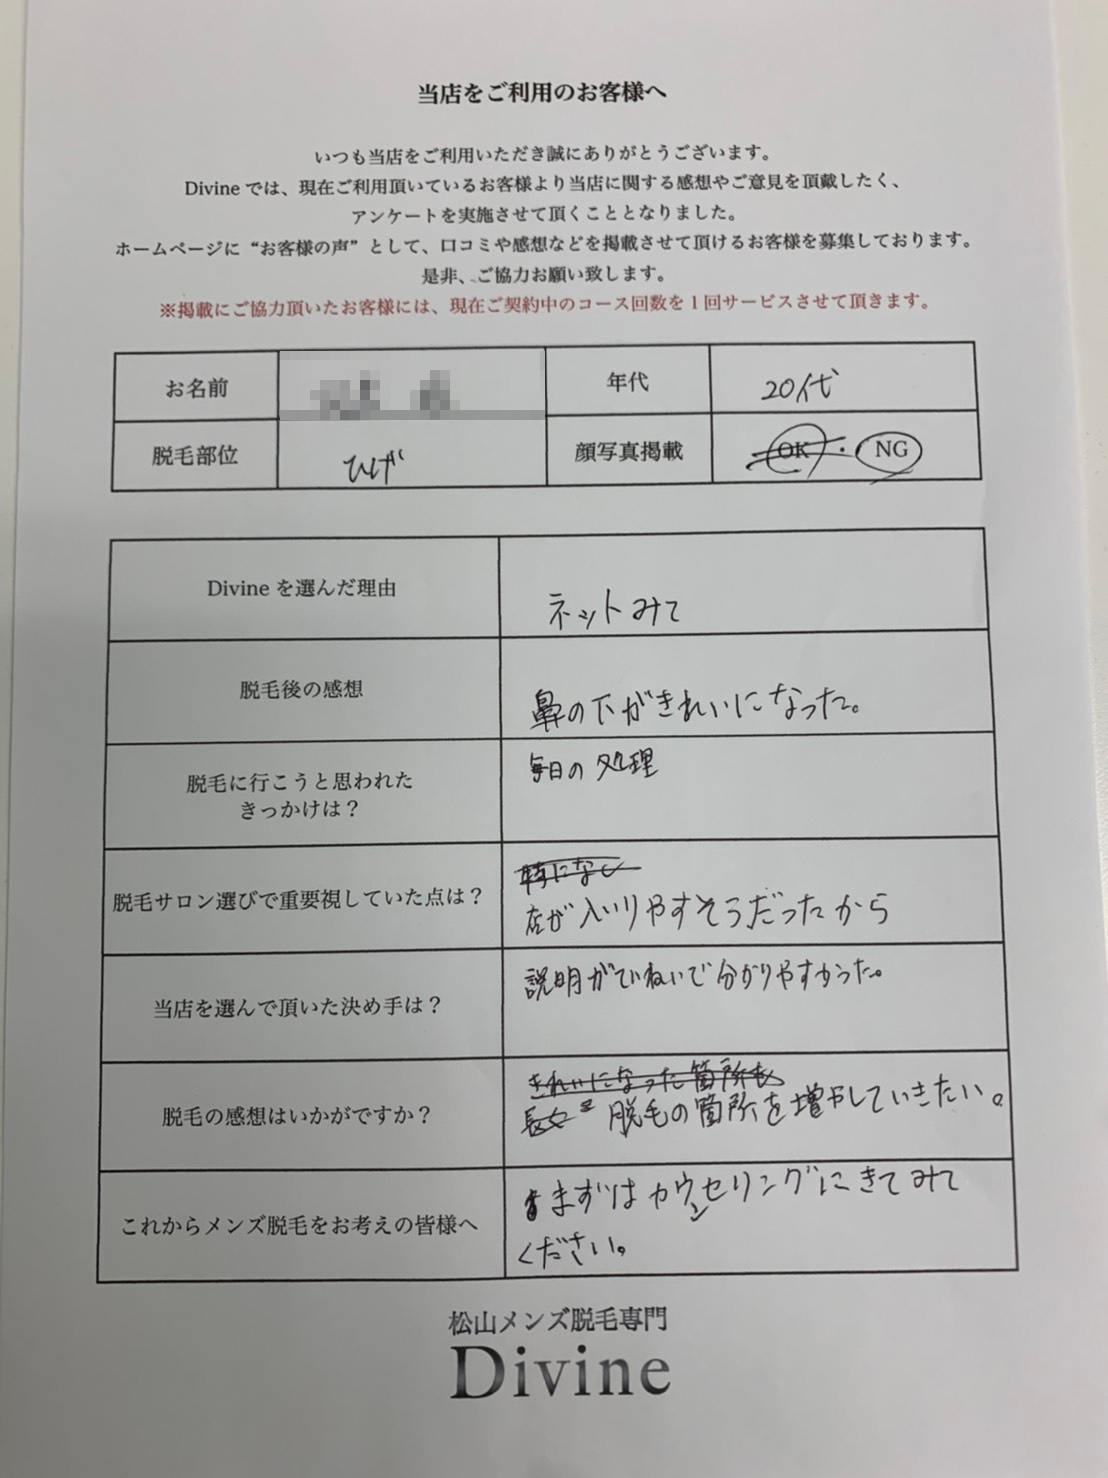 当店をご利用のお客様へ
いつも当店をご利用いただき誠にありがとうございます。
Divineでは、現在ご利用頂いているお客様より当店に関する感想やご意見を頂戴したく、
アンケートを実施させて頂くこととなりました。
ホームページに“お客様の声”として、口コミや感想などを掲載させて頂けるお客様を募集しております。
是非、ご協力お願い致します。
※掲載にご協力頂いたお客様には、現在ご契約中のコース回数を1回サービスさせて頂きます。
お名前 年代 20代
脱毛部位 ひげ 顔写真掲載 OK・NG
Divineを選んだ理由
ネットみて
脱毛後の感想
鼻の下がきれいになった。
脱毛に行こうと思われた
きっかけは?
毎日の処理
脱毛サロン選びで重要視していた点は?
特になし
店が入いりやすそうだったから
当店を選んで頂いた決め手は?
説明がていねいで分かりやすかった。
脱毛の感想はいかがですか?
きれいになった箇所も
脱毛の箇所を増やしていきたい。
これからメンズ脱毛をお考えの皆様へ
まずはカウンセリングにきてみて
ください。
松山メンズ脱毛専門
Divine